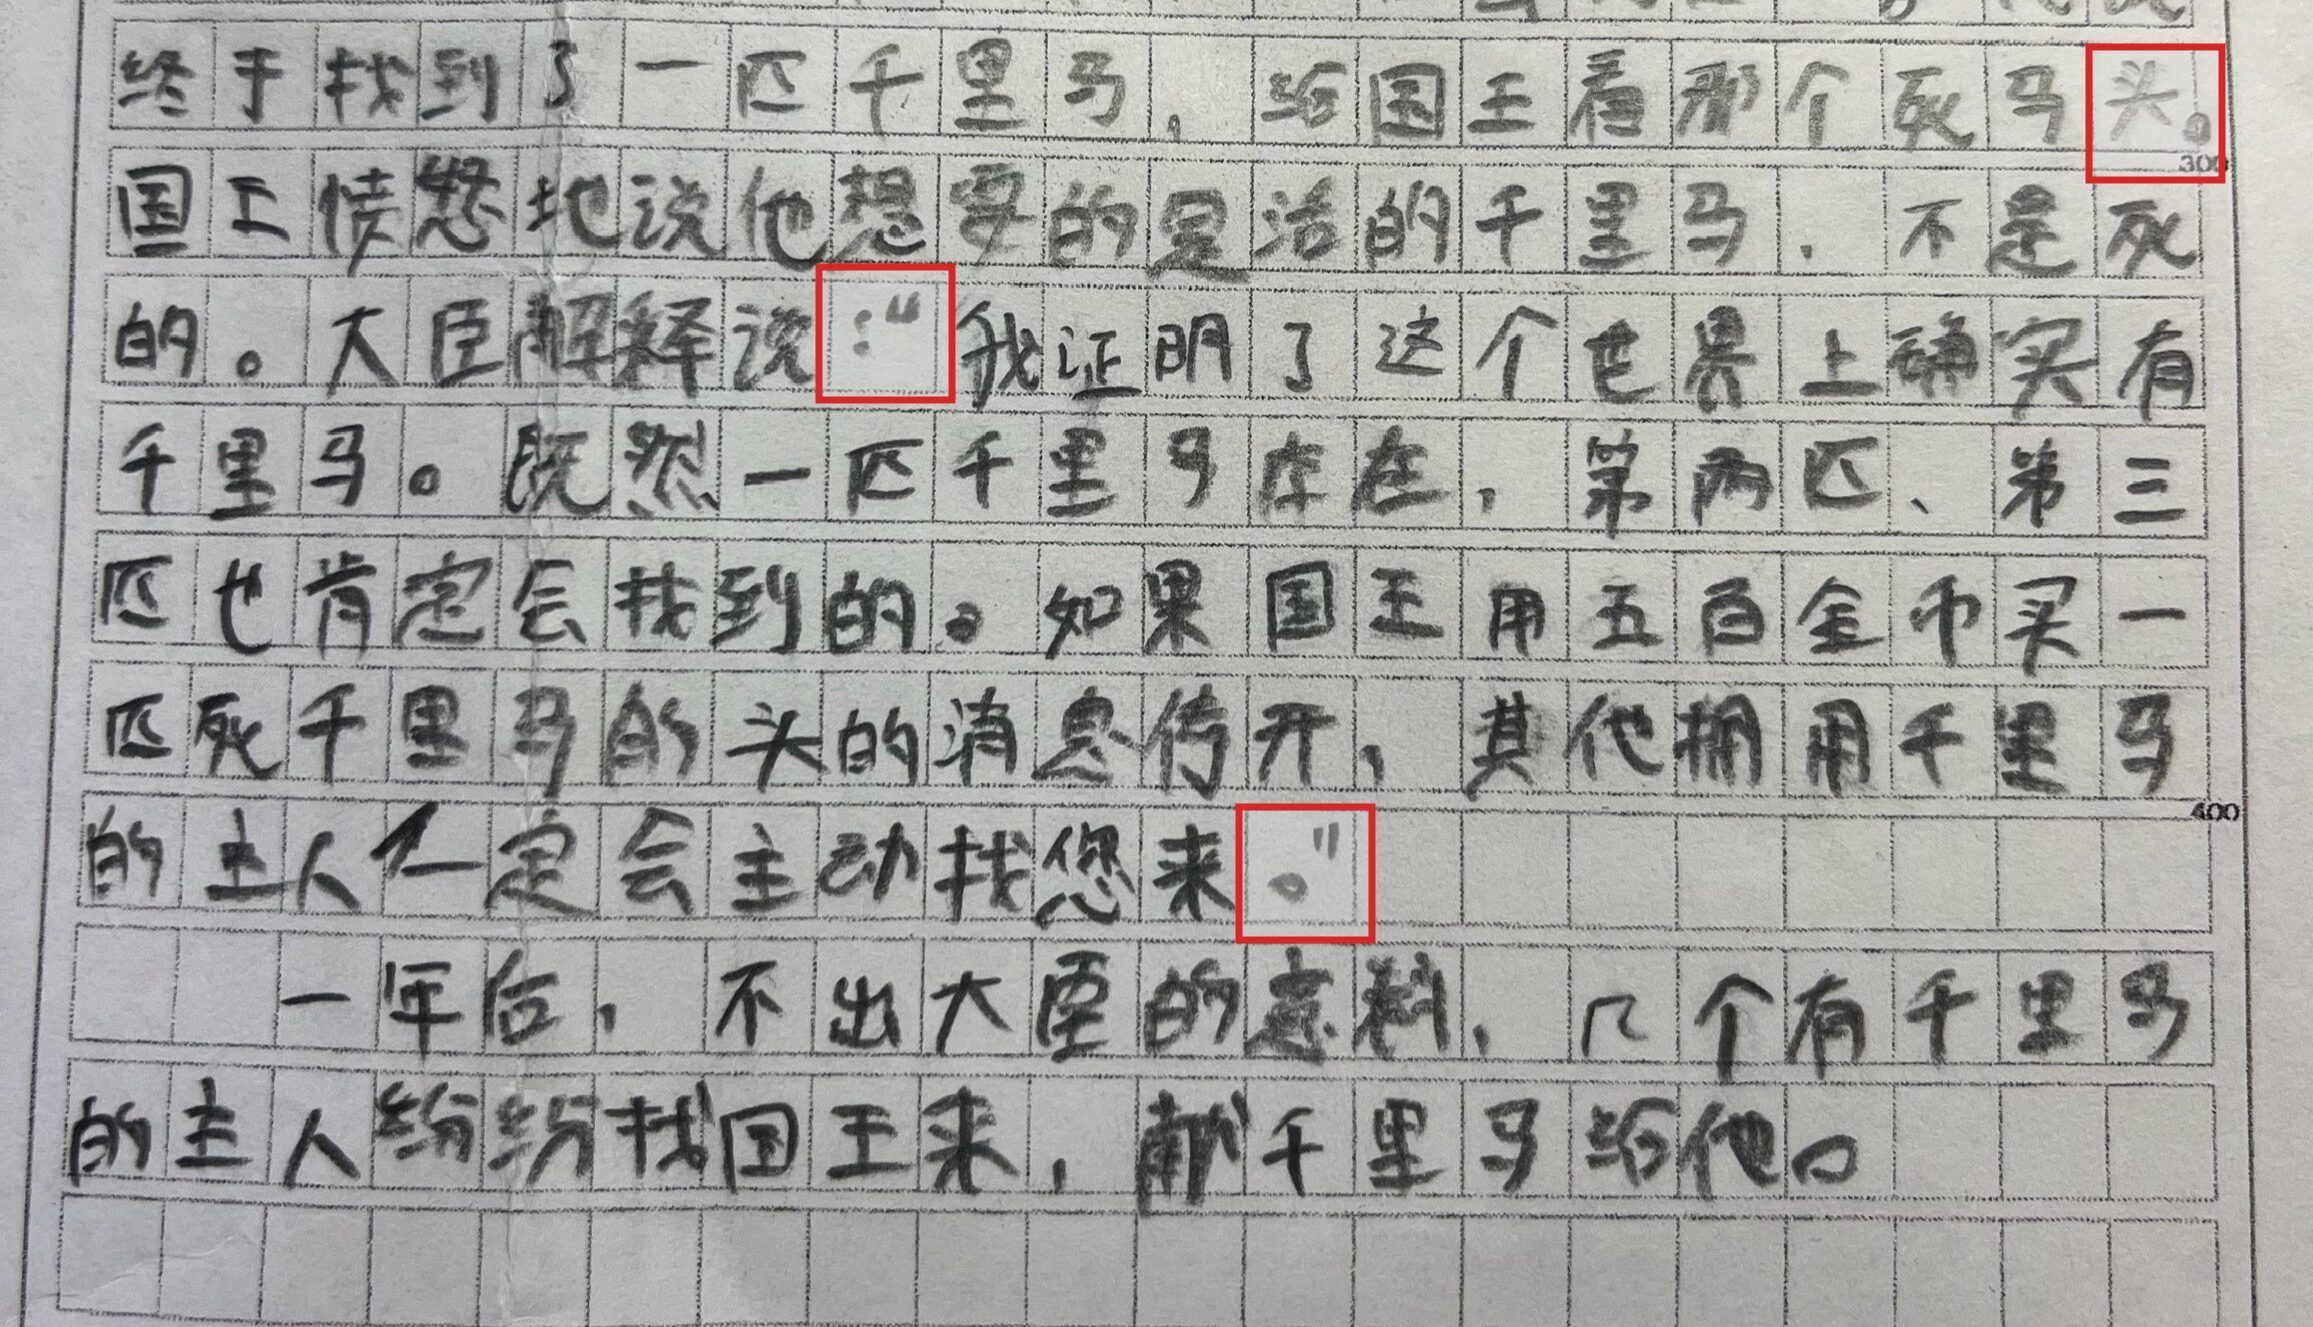 终于找到了一匹千里马，给国王看那个死马头。
300
国王愤怒地说他想要的是活的千里马，不是死
的。大臣解释说：“我证明了这个世界上确实有
千里马。既然一匹千里马存在，第两匹、第三
匹也肯定会找到的。如果国王用五百金币买一
匹死千里马的头的消息传开，其他拥用千里马
400
的主人一定会主动找您来。”
一年后，不出大臣的意料，几个有千里马
的主人纷纷找国王来，献千里马给他。